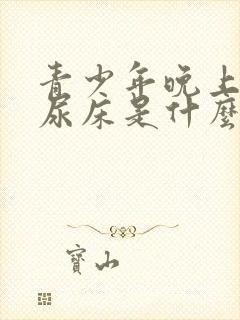 青少年晚上
尿床是什麼
寶山